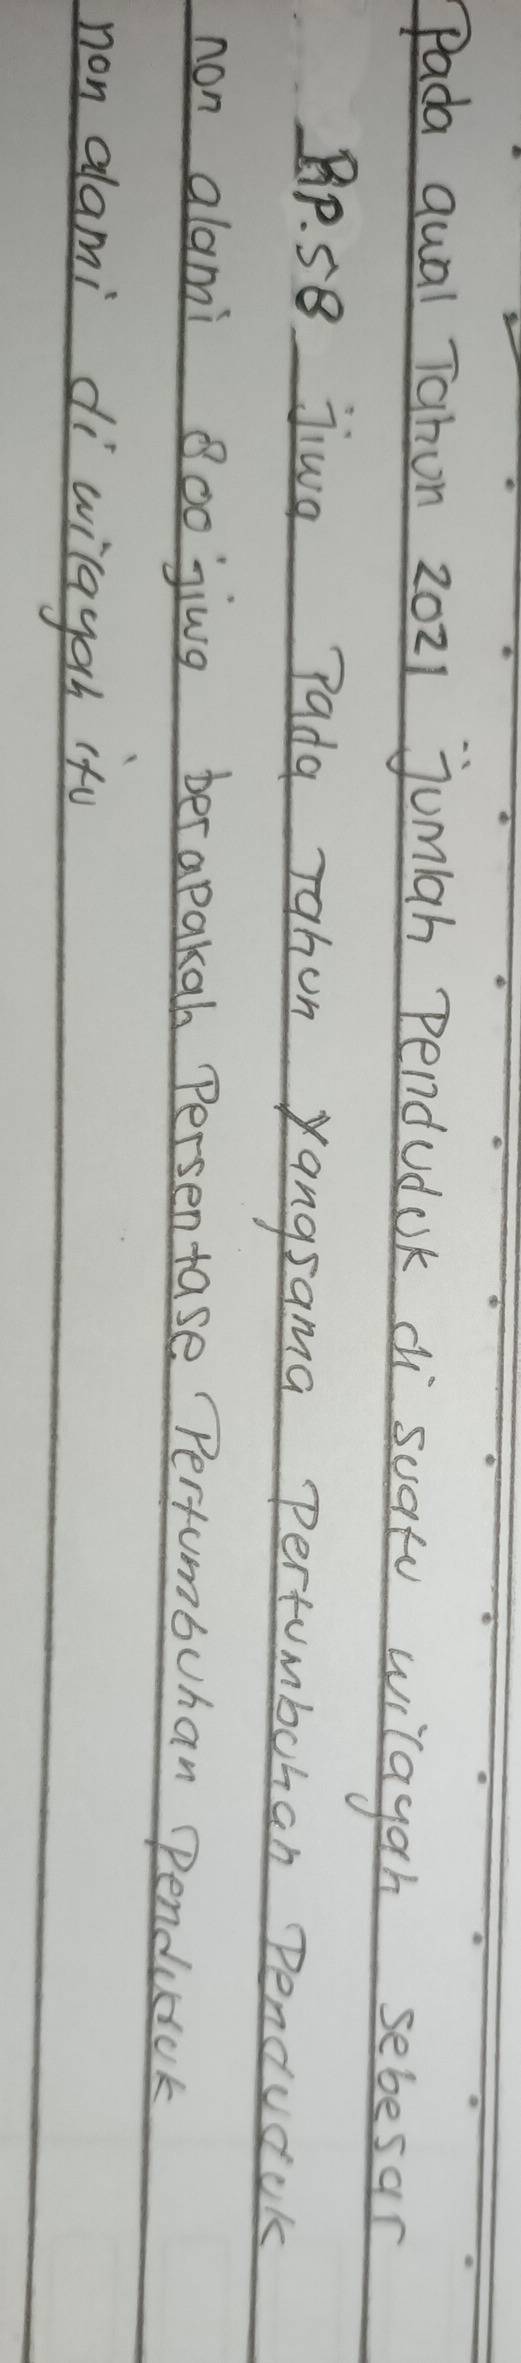 Pada awal Tahun 2021 jumlah Penduduk di suatu wilayah sebesar
RP.58 jiwa Pada Tahun Yangsama Pertumbuhan Penduduk
non alami 800 jiwa berapakah Persentase Pertumbuhan Penduduk
non alami di wilayah itu